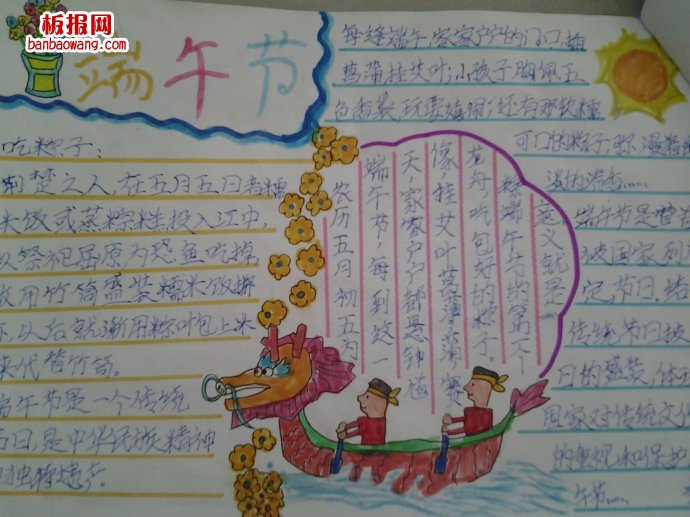 板报网
banbaowang.com
端午节
每逢端午,家家户户的门口插
菖蒲挂艾叶;小孩子胸佩五
色香袋,玩耍嬉闹;还有那软糯
可口的粽子,弥漫着
淡的清香……
吃粽子:
荆楚之人,在五月五日煮糯
米饭或蒸粽糕投入江中,
以祭祀屈原为恐鱼吃掉
故用竹筒盛装糯米饭掷
下,以后就渐用粽叶包上米
来代替竹筒。
端午节是一个传统
节日,是中华民族精神
独特遗产。
农历五月初五为
端午节,每到这一
天,家家户户都悬钟馗
像,挂艾叶菖蒲,赛
龙舟,吃包好的粽子。
粽端午节的第一个
意义就是……
端午节是
被国家列
定节日,
传统节日
日的盛装,体
国家对传统文化
的重视和保护
午节……